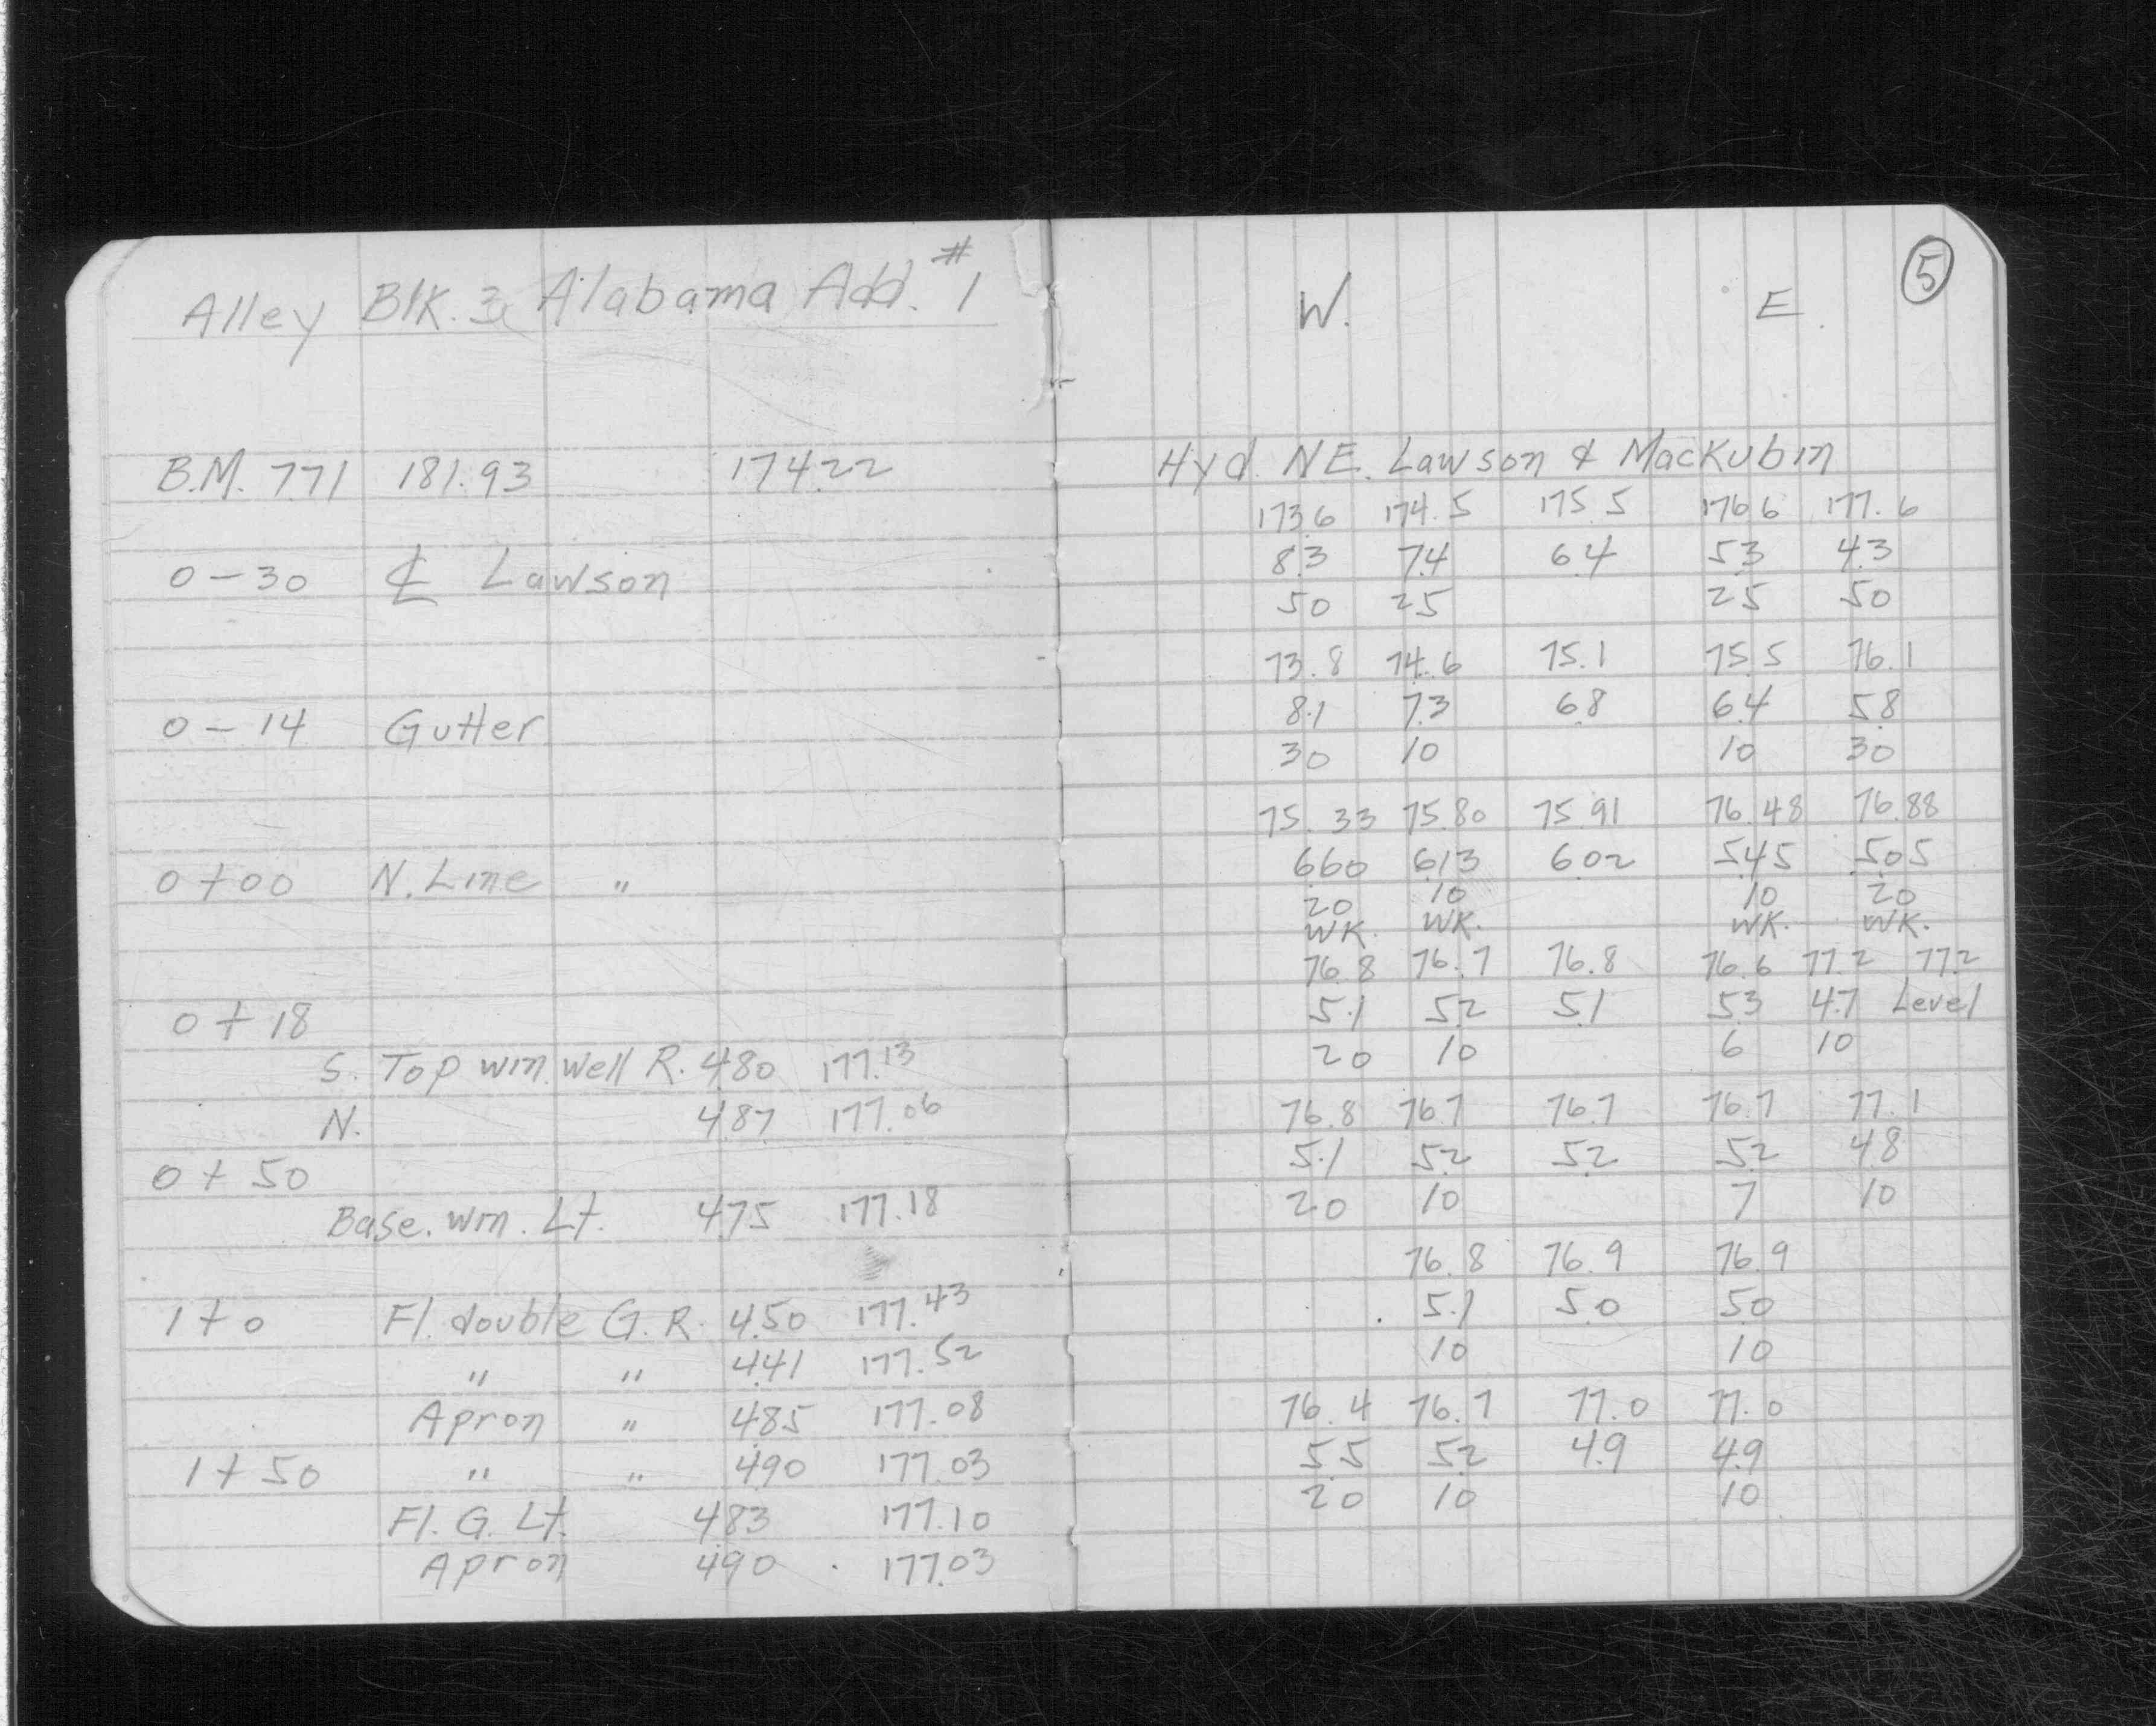 Alley Blk. 3 Alabama Add. #1
B.M. 7.71 181.93 174.22
0-30 ℄ Lawson
0-14 Gutter
0+00 N. Line "
0+18
S. Top win. well R. 4.80 177.13
N. 4.87 177.06
0+50
Base. win. Lt. 4.75 177.18
1+0 Fl. double G. R. 4.50 177.43
" " 4.41 177.52
Apron " 4.85 177.08
1+50 " " 4.90 177.03
Fl. G. Lt. 4.83 177.10
Apron 4.90 177.03
5
W. E.
Hyd. NE. Lawson & Mackubin
173.6 174.5 175.5 176.6 177.6
8.3 7.4 6.4 5.3 4.3
50 25 25 50
73.8 74.6 75.1 75.5 76.1
8.1 7.3 6.8 6.4 5.8
30 10 10 30
75.33 75.80 75.91 76.48 76.88
6.60 6.13 6.02 5.45 5.05
20 10 10 20
WK. WK. WK. WK.
76.8 76.7 76.8 76.6 77.2 77.2
5.1 5.2 5.1 5.3 4.7 Level
20 10 6 10
76.8 76.7 76.7 76.7 77.1
5.1 5.2 5.2 5.2 4.8
20 10 7 10
76.8 76.9 76.9
5.1 5.0 5.0
10 10
76.4 76.7 77.0 77.0
5.5 5.2 4.9 4.9
20 10 10